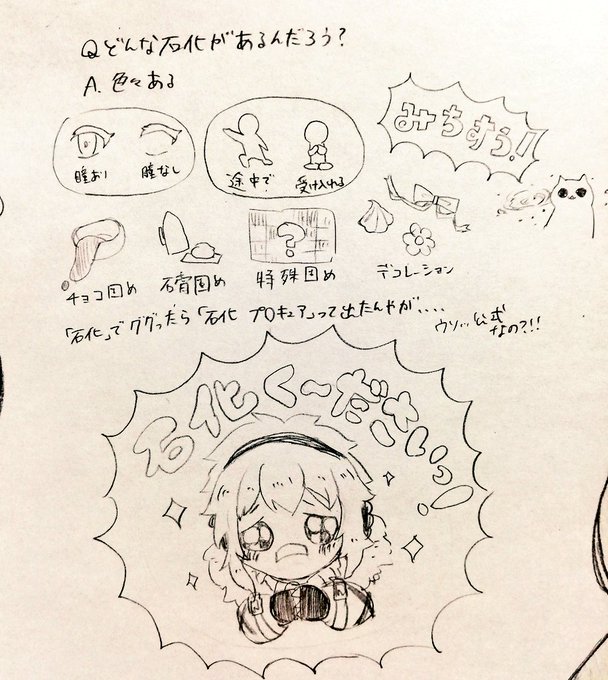 Q どんな石化があるんだろう?
A. 色々ある
みちすう!!
瞳あり
瞳なし
途中で
受け入れる
チョコ固め
石膏固め
?
特殊固め
デコレーション
「石化」でググったら「石化 プロキュア」って出たんやが....
ウソッ公式なの?!!
石化く〜ださいっ!